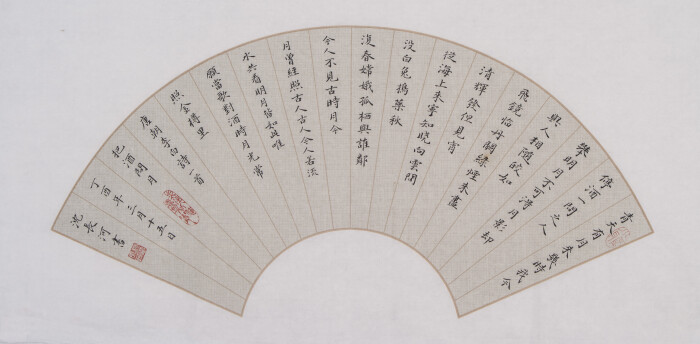 青天有月来幾時我今
停酒一問之人
攀明月不可得月影却
與人相隨皎如
飛鏡臨丹闕緑煙未盡
清輝發但見宵
從海上来寧知曉向雲間
没白兔搗藥秋
復春嫦娥孤栖與誰鄰
今人不見古時月今
月曾經照古人古人今人若流
水共看明月皆如此唯
願當歌對酒時月光常
照金樽里
唐朝李白詩一首
把酒問月
丁酉年三月十五日
沈長河書